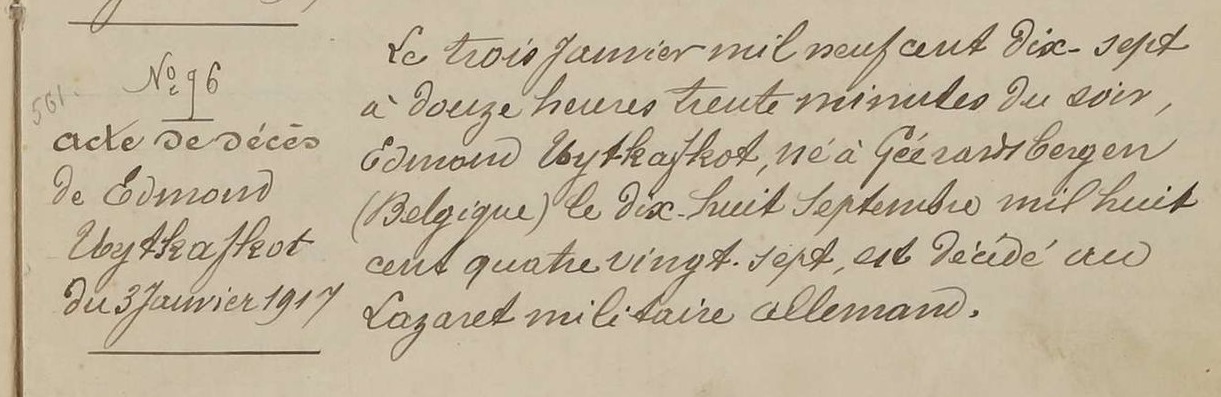 No. 96
561.
acte de décès
de Edmond
Uytkafkot
du 3 Janvier 1917
Le trois Janvier mil neuf cent dix-sept
à douze heures trente minutes du soir,
Edmond Uytkafkot, né à Géérardsbergen
(Belgique) le dix-huit Septembre mil huit
cent quatre vingt-sept, est décédé au
Lazaret militaire allemand.